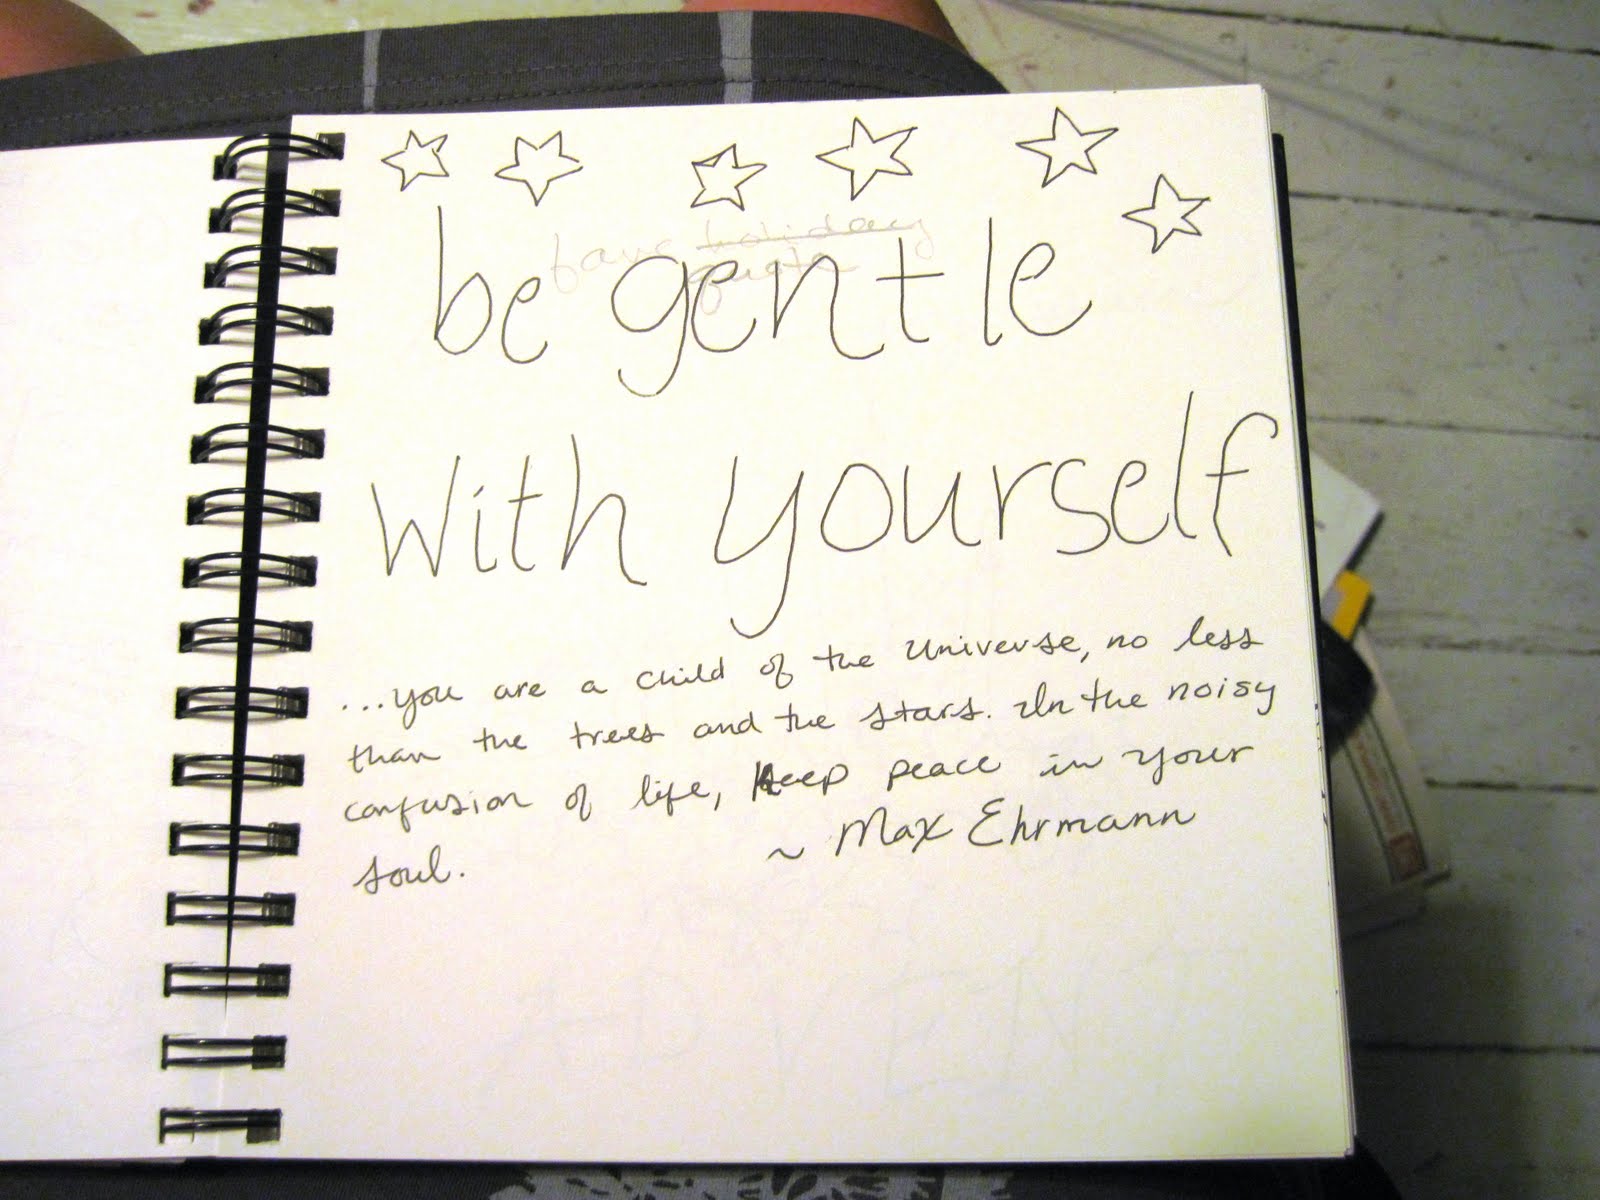 fave holiday
quote
be gentle
With yourself
...you are a child of the Universe, no less
than the trees and the stars. In the noisy
confusion of life, keep peace in your
soul.
~ Max Ehrmann
ADVENT